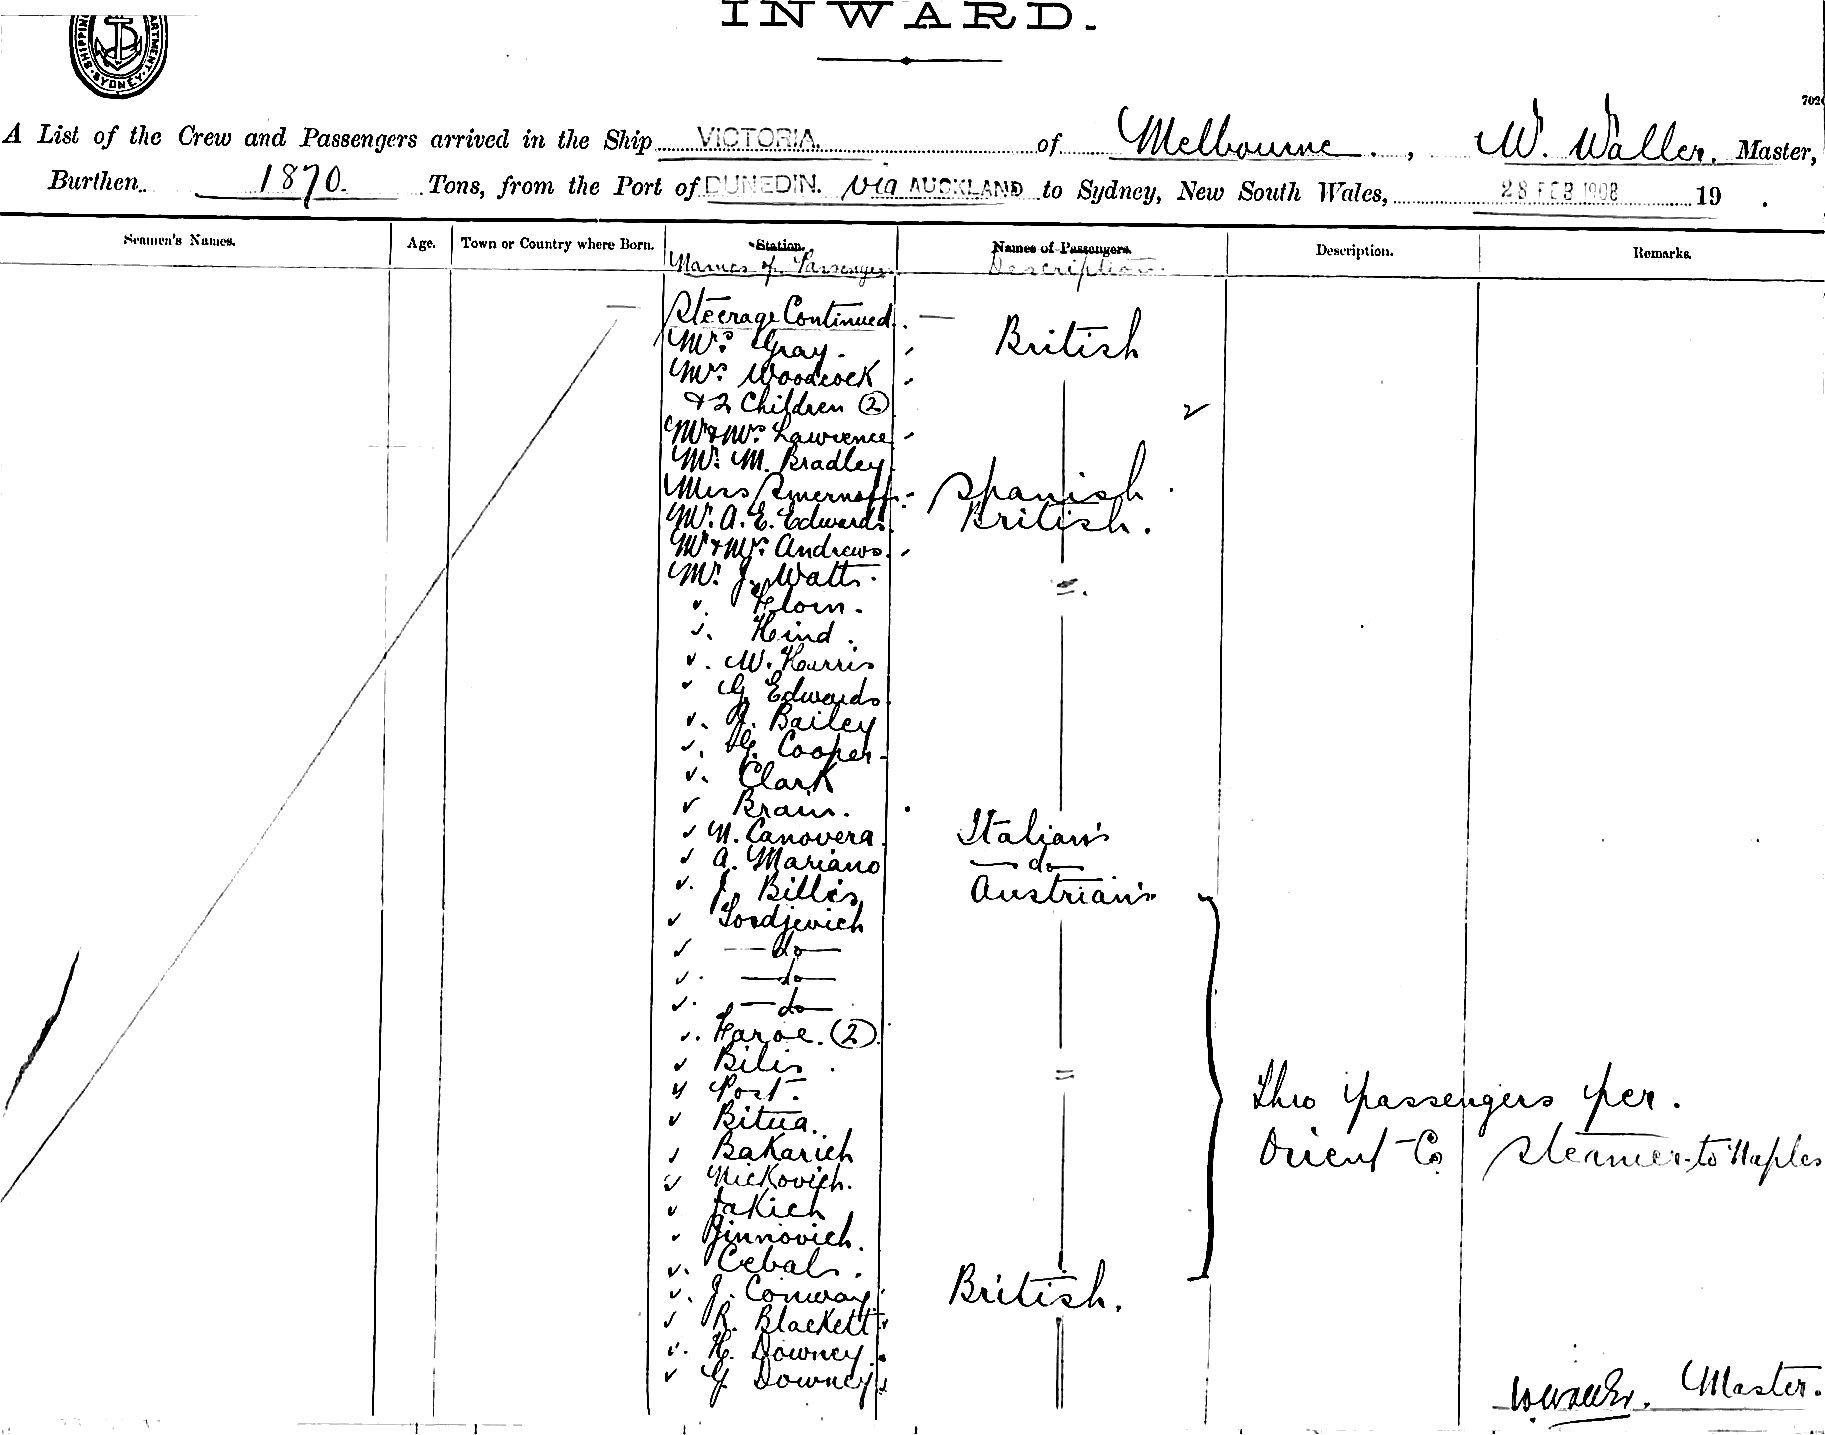 INWARD.
SYDNEY
A List of the Crew and Passengers arrived in the Ship VICTORIA. of Melbourne, W. Waller. Master,
Burthen 1870. Tons, from the Port of DUNEDIN. via AUCKLAND to Sydney, New South Wales, 28 FEB 1908 19 .
Seamen's Names. Age. Town or Country where Born. Station. Names of Passengers. Description. Remarks.
Names of Passengers Description.
Steerage Continued. —
Mrs Gray. British
Mrs Woodcock
& 2 Children (2)
Mr & Mrs Lawrence
Mr. M. Bradley
Miss Spanish
Mr. A. E. Edwards. British.
Mr & Mrs Andrews.
Mr. J. Watts.
Hind.
W. Harris
G. Edwards
J. Bailey
G. Cooper
Clark
Brain.
N. Canovera Italians
A. Mariano — do —
J. Billis Austrians
— do —
— do —
— do —
(2)
Bilis
Post.
Bitua.
Bakarich
Nickovich.
Jakich
Jinnovich.
Cebalo.
Thro passengers per.
Orient Co Steamer to Naples
J. Conway British.
R. Blackett
H. Downey
G. Downey
W. Waller. Master.